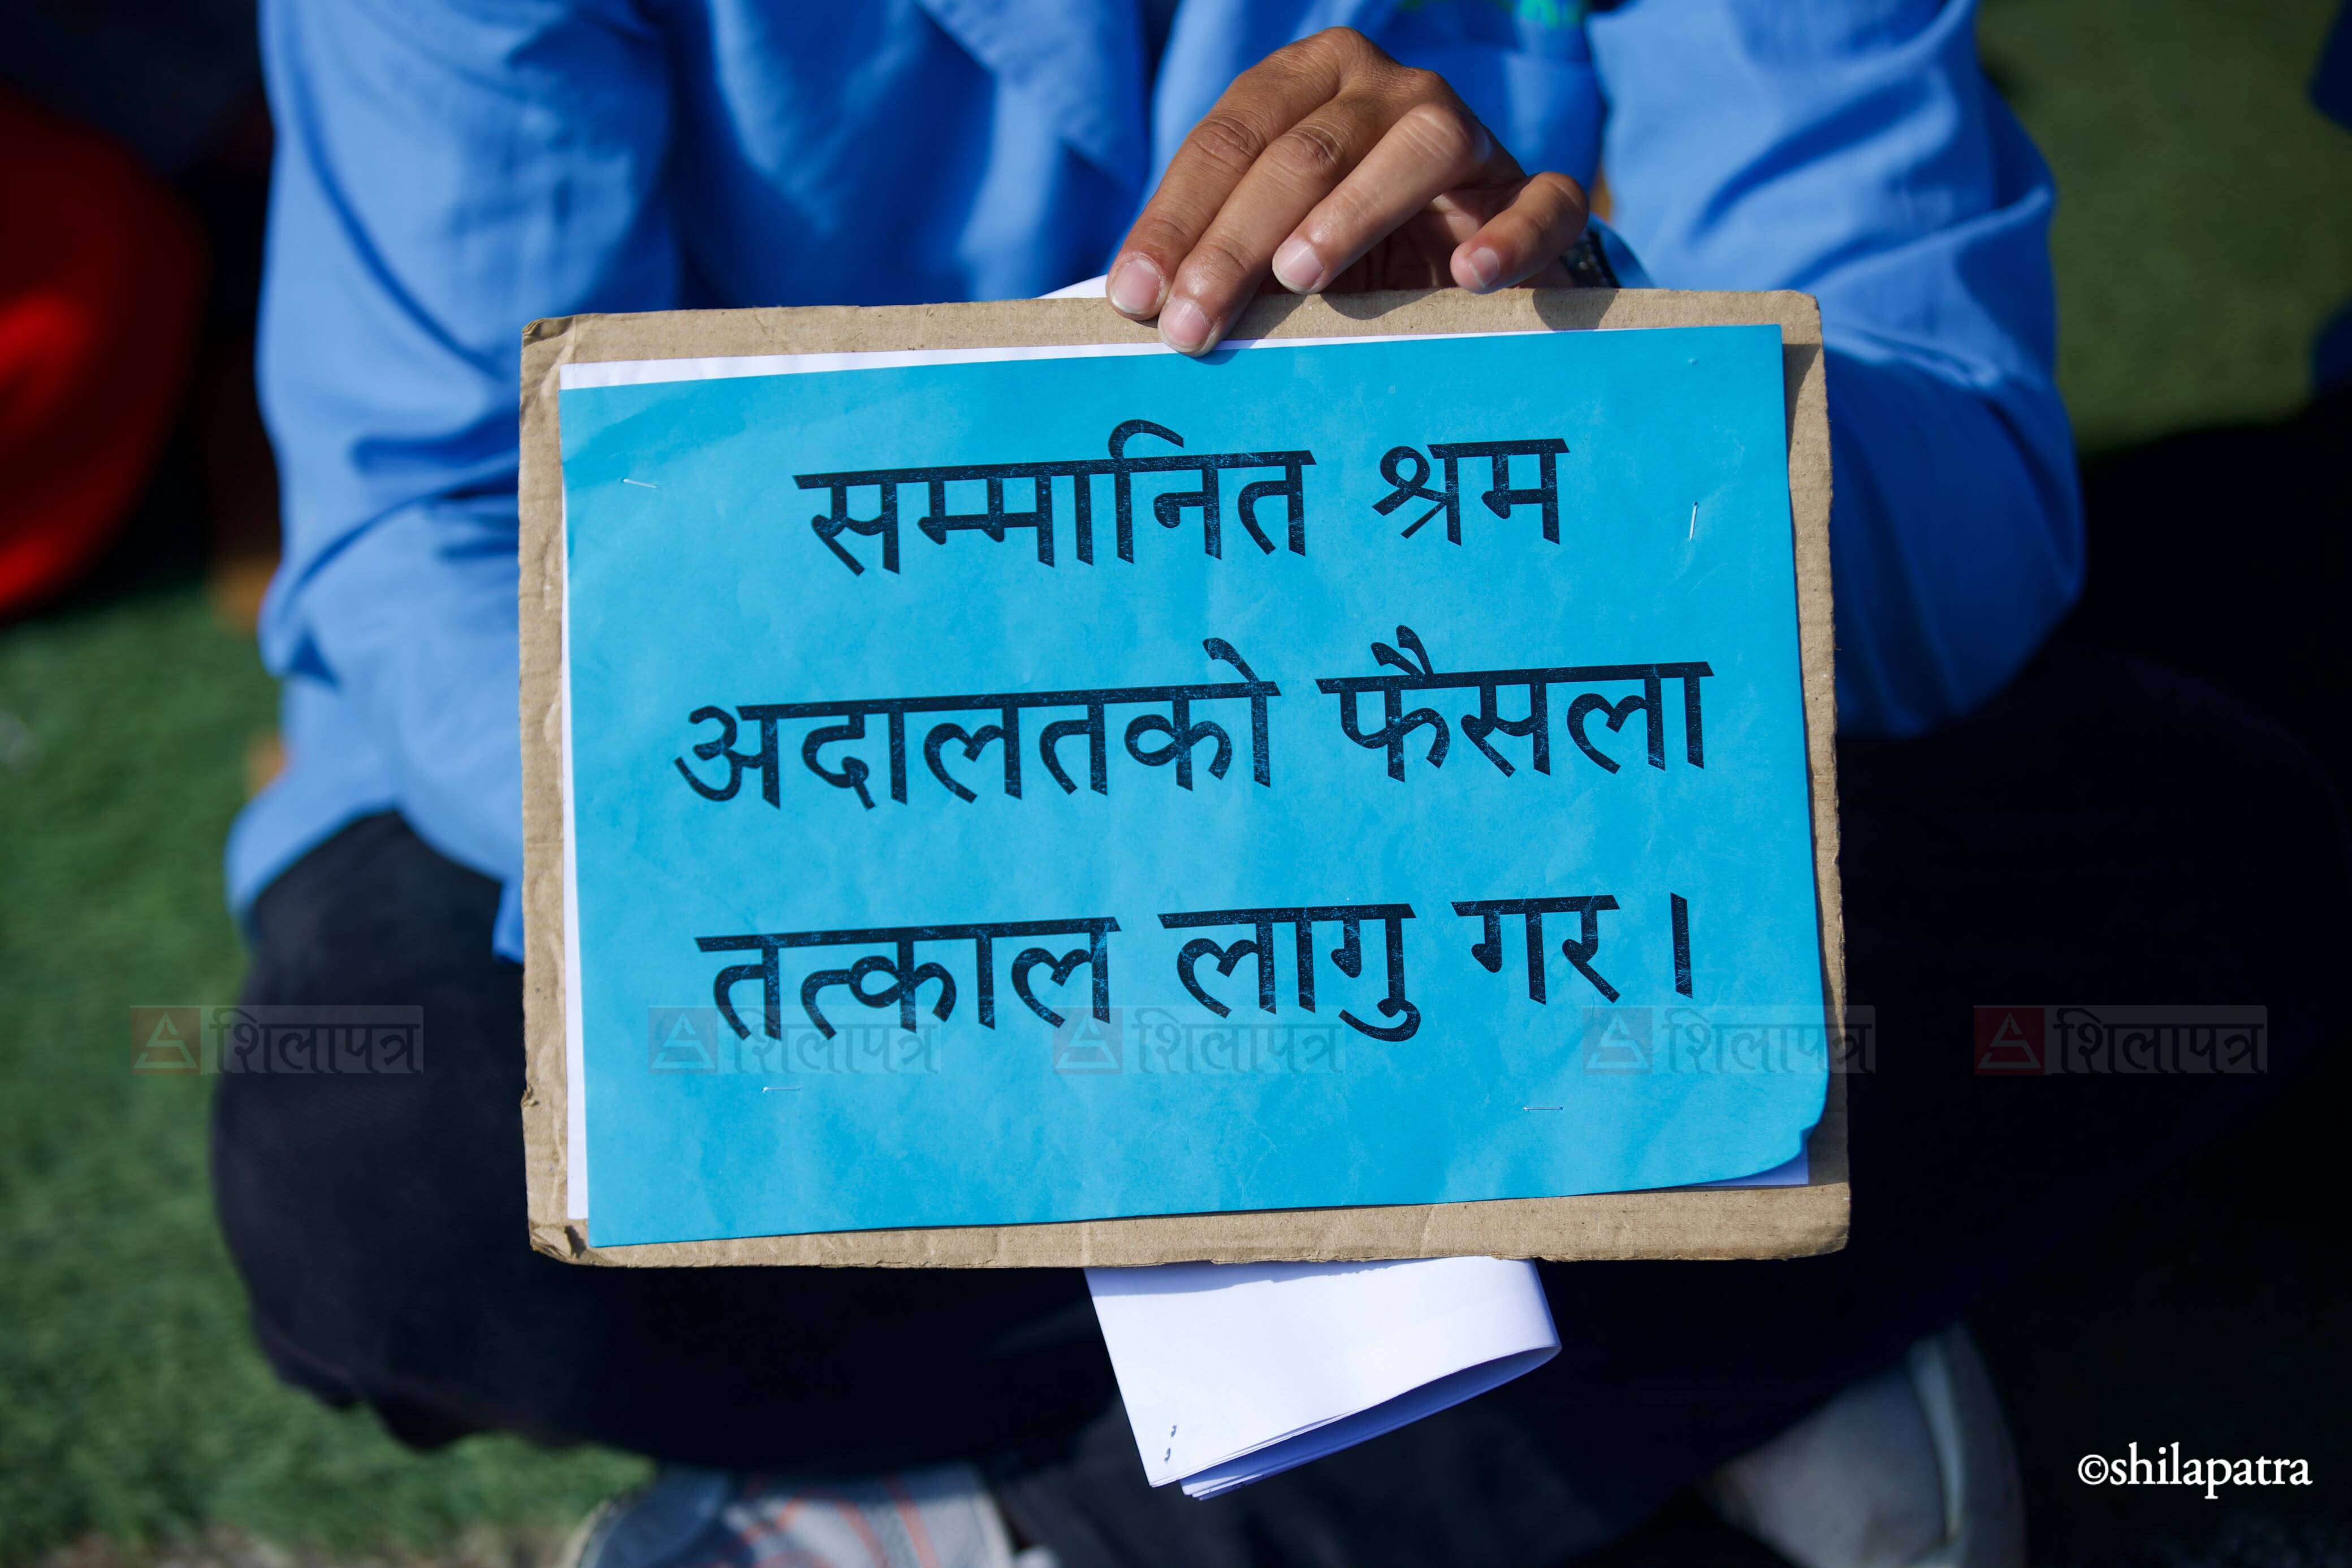 सम्मानित श्रम
अदालतको फैसला
तत्काल लागु गर ।
शिलापत्र शिलापत्र शिलापत्र शिलापत्र शिलापत्र
©shilapatra